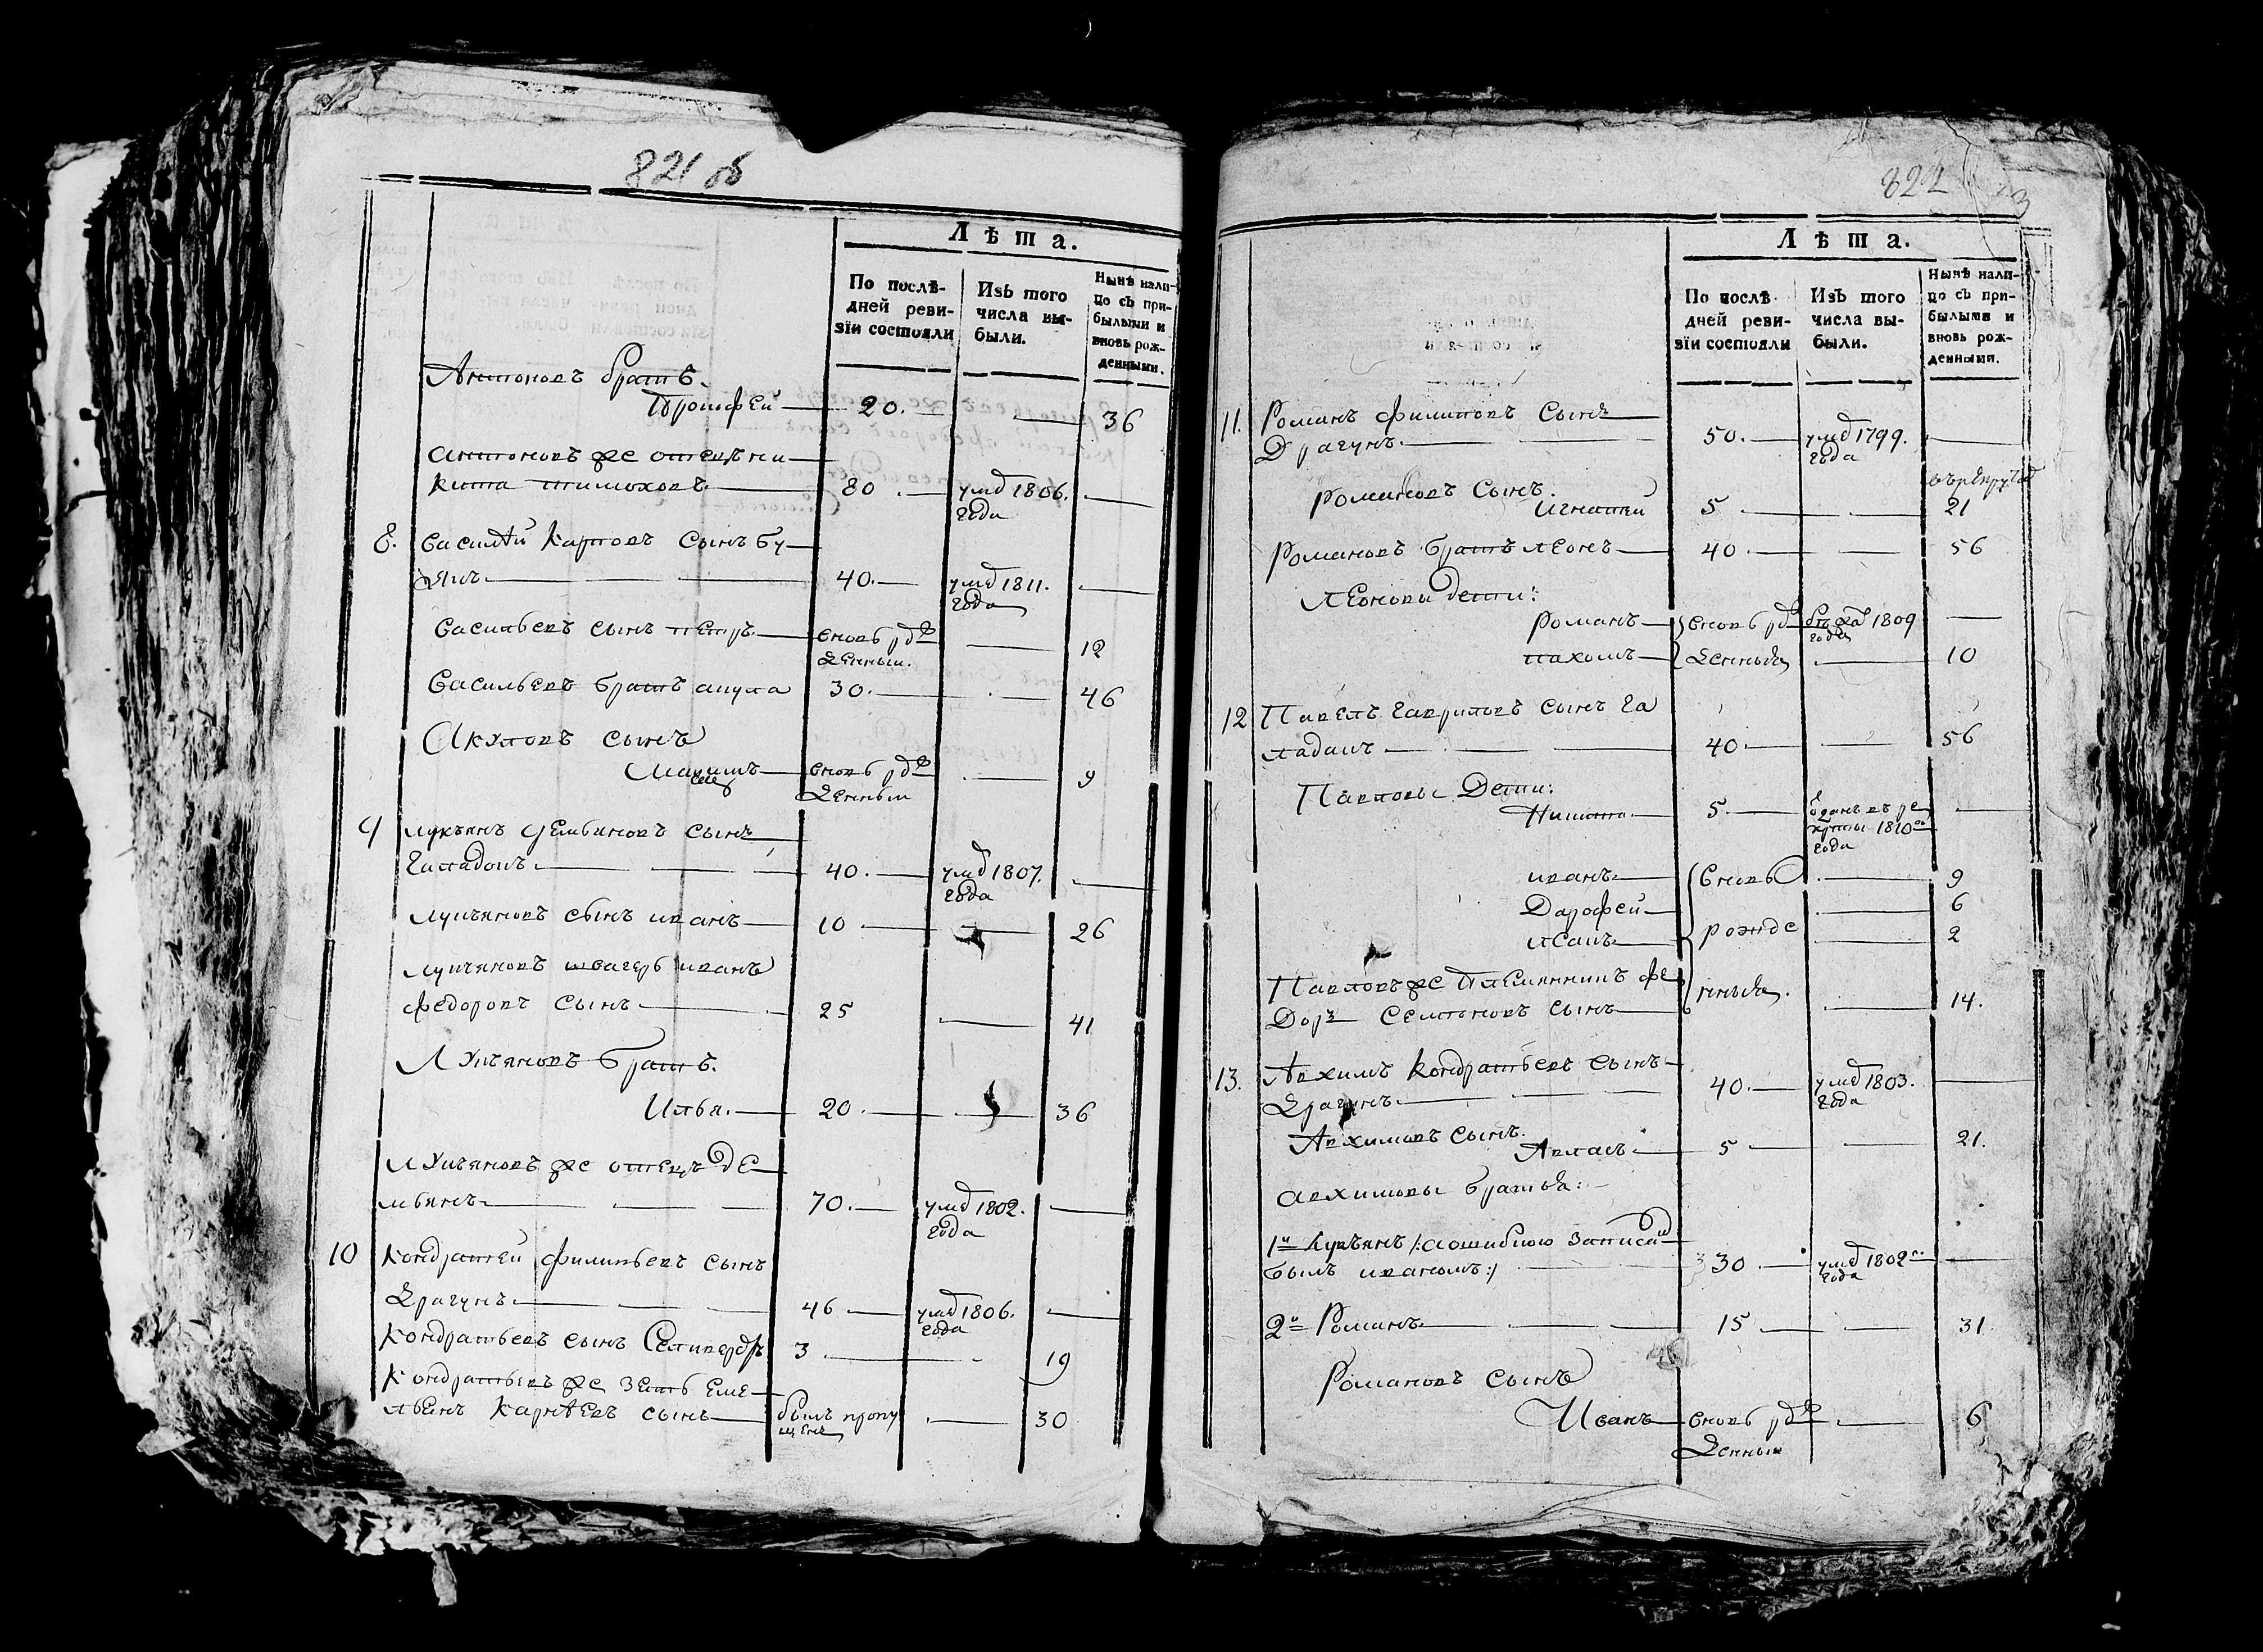 821 об
Лѣта.
По послѣ-
дней реви-
зіи состояли
Изъ того
числа вы-
были.
Нынѣ нали-
цо съ при-
былыми и
вновь рож-
денными.
Антоновъ братъ.
Трофей 20. 36
антоновъ же отецъ ни
кита тимоховъ. 80 умд 1806.
года
8. василѣй карповъ сынъ бу
40. умд 1811.
года
васильевъ сынъ петръ вновь рож
денныи. 12
васильевъ братъ акула 30. 46
Акуловъ сынъ
вновь рож 9
денныи
9 лукъянъ демьяновъ сынъ
галадонъ 40. умд 1807.
года
лукъяновъ сынъ иванъ 10 26
лукъяновъ швагеръ иванъ
федоровъ сынъ 25 41
Лукъяновъ братъ.
Илья. 20. 36
лукъяновъ же отецъ де
мьянъ 70. умд 1802.
года
10 кондратей филипьевъ сынъ
драгунъ 46 умд 1806.
года
кондратьевъ сынъ 3 19
кондратьевъ же зеть еме
льянъ карнѣевъ сынъ былъ пропу 30
щенъ
822
Лѣта.
По послѣ-
дней реви-
зіи состояли
Изъ того
числа вы-
были.
Нынѣ нали-
цо съ при-
былыми и
вновь рож-
денными.
11. Романъ филиповъ сынъ
Драгунъ. 50. умд 1799.
года
романовъ сынъ.
игнатей 5 21
романовъ братъ леонъ 40 56
леоновы дети:
романъ вновь рож 1809
года
пахомъ денныя 10
12 Павелъ гавриловъ сынъ га
ладанъ 40 56
Павловы Дети:
Никита 5 отданъ въ ре
круты 1810го
года
иванъ вновь 9
Дарофей 6
рожде 2
Павловъ же племянникъ фе
доръ семеновъ сынъ нныя. 14.
13. Авхимъ кондратьевъ сынъ
драгунъ 40. умд 1803.
года
Авхимовъ сынъ.
Авласъ 5 21.
авхимовы братья:
1й лукъянъ /:аошибкою записан
былъ иваномъ:/ 30 умд 1802го
года
2й Романъ 15 31.
романовъ сынъ
Иванъ вновь рож 6
денныи